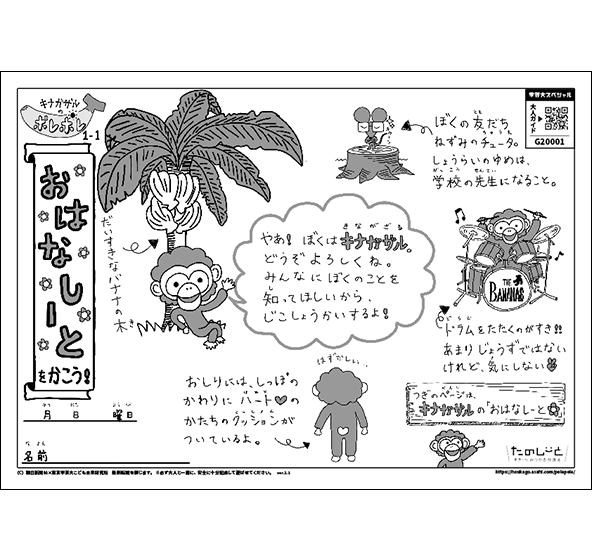 キナガザル
の
ポレポレ
1-1
おはなしーと
をかこう!
月 日 曜日
がつ にち ようび
名前
なまえ
だいすきな、バナナの木
き
ぼくの友だち
とも
ねずみのチュータ。
しょうらいのゆめは、
学校の先生になること。
がっこう せんせい
学芸大スペシャル
大人ガイド
G20001
きながざる
やあ! ぼくはキナガザル。
どうぞよろしくね。
みんなにぼくのことを
知ってほしいから、
し
じこしょうかいするよ!
THE
BANANAS
ドラムをたたくのがすき!!
あまりじょうずではない
けれど、気にしない
き
はずかしい…
おしりには、しっぽの
かわりにハート♥の
かたちのクッションが
ついているよ。
つぎのページは、
キナガザルの「おはなしーと
たのしーと
https://houkago.asahi.com/polepole/